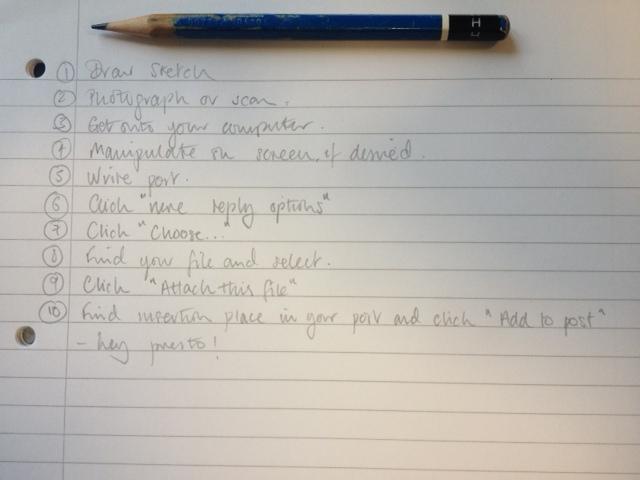 ① Draw sketch
② Photograph or scan.
③ Get onto your computer.
④ Manipulate on screen, if desired.
⑤ Write post.
⑥ Click "more reply options"
⑦ Click "Choose..."
⑧ Find your file and select.
⑨ Click "Attach this file"
⑩ Find insertion place in your post and click "Add to post"
- hey presto!